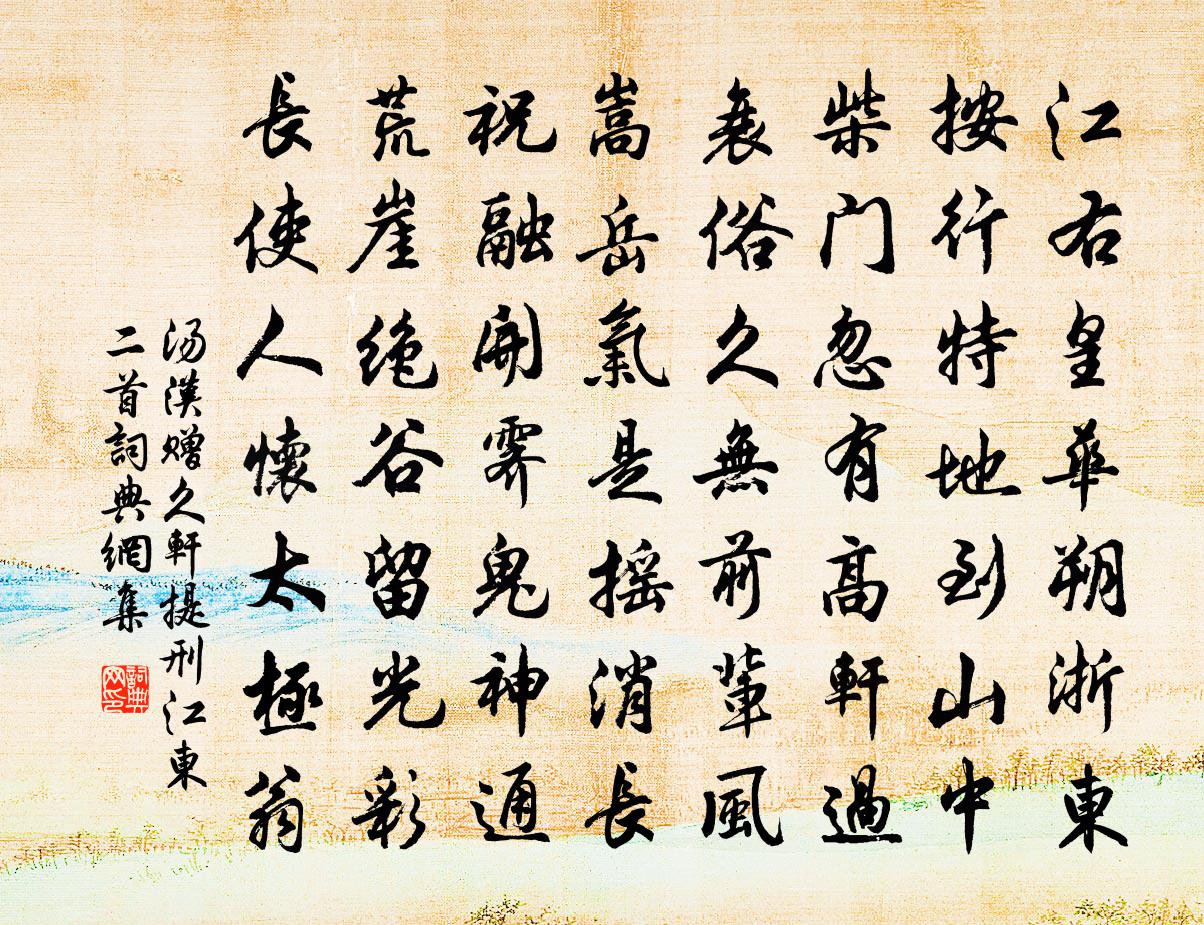 江右皇華朔浙東
按行特地到山中
柴門忽有高軒過
衰俗久無前輩風
嵩岳氣是搖消長
祝融開霽鬼神通
荒崖絶谷留光彩
長使人懷太極翁
湯漢贈久軒提刑江東
二首詞典網集
詞典網印